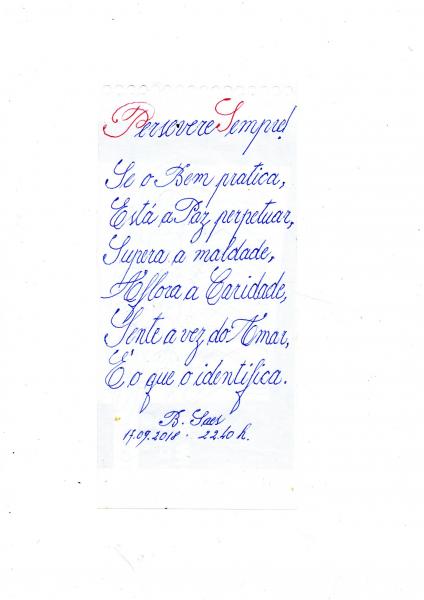 Persevere Sempre!
Se o Bem pratica,
Está a Paz perpetuar,
Supera a maldade,
Aflora a Caridade,
Sente a vez do Amar,
É o que o identifica.
B. Saes
17.09.2018 - 22.10 h.